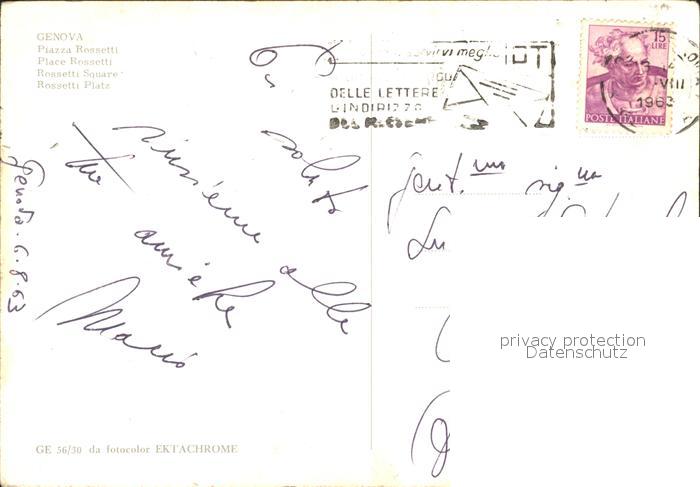 GENOVA
Piazza Rossetti
Place Rossetti
Rossetti Square
Rossetti Platz
servirvi meglio
DELLE LETTERE
L'INDIRIZZO
DEL
15
LIRE
VIII
1963
POSTE ITALIANE
Un saluto
insieme alle
tue amiche
Mario
Genova. 6.8.63
Gent.ma sig.na
privacy protection
Datenschutz
GE 56/30 da fotocolor EKTACHROME